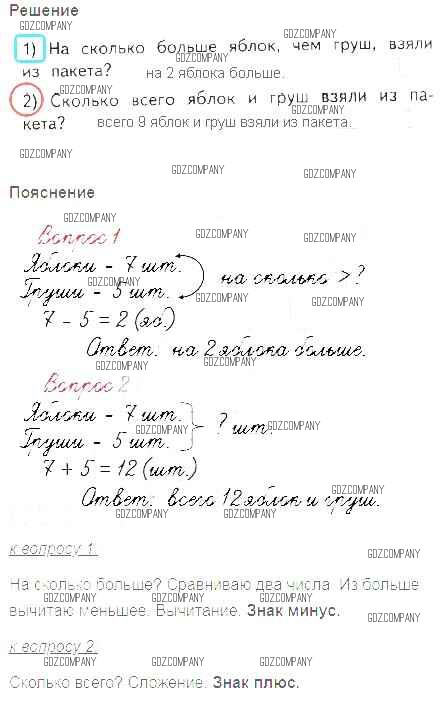 Решение
GDZCOMPANY
GDZCOMPANY
1) На сколько больше яблок, чем груш, взяли
GDZCOMPANY
из пакета? на 2 яблока больше.
GDZCOMPANY
2) Сколько всего яблок и груш взяли из па-
GDZCOMPANY
кета? всего 9 яблок и груш взяли из пакета.
GDZCOMPANY
GDZCOMPANY
GDZCOMPANY
Пояснение
GDZCOMPANY
Вопрос 1
GDZCOMPANY
GDZCOMPANY
Яблоки - 7 шт.
на сколько > ?
GDZCOMPANY
Груши - 5 шт.
GDZCOMPANY
7 - 5 = 2 (яб.)
Ответ: на 2 яблока больше.
GDZCOMPANY
GDZCOMPANY
Вопрос 2
Яблоки - 7 шт.
? шт.
GDZCOMPANY
GDZCOMPANY
Груши - 5 шт.
7 + 5 = 12 (шт.)
GDZCOMPANY
Ответ: всего 12 яблок и груш.
GDZCOMPANY
GDZCOMPANY
к вопросу 1.
GDZCOMPANY
На сколько больше? Сравниваю два числа. Из больше
вычитаю меньшее. Вычитание. Знак минус.
GDZCOMPANY
к вопросу 2.
GDZCOMPANY
GDZCOMPANY
GDZCOMPANY
Сколько всего? Сложение. Знак плюс.